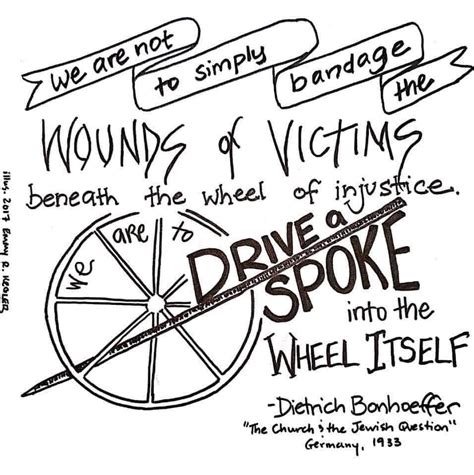 We are not
to simply
bandage
the
WOUNDS of VICTIMS
beneath the wheel of injustice.
We are to
DRIVE a
SPOKE
into the
WHEEL ITSELF
-Dietrich Bonhoeffer
"The Church & the Jewish Question"
Germany, 1933
illus. 2017 Emmy R. Kegler